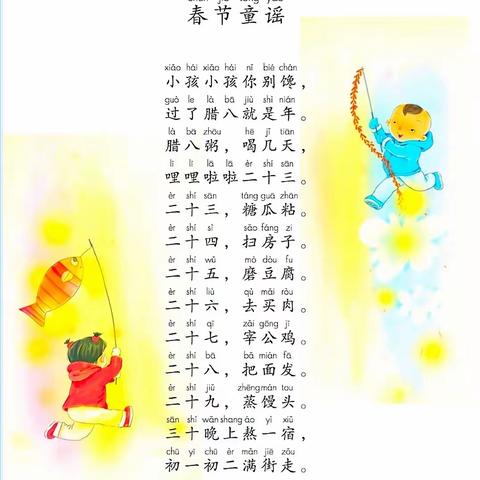 chūn jié tóng yáo
春节童谣
xiǎo hái xiǎo hái nǐ bié chán
小孩小孩你别馋，
guò le là bā jiù shì nián
过了腊八就是年。
là bā zhōu hē jǐ tiān
腊八粥，喝几天，
lī lī lā lā èr shí sān
哩哩啦啦二十三。
èr shí sān táng guā zhān
二十三，糖瓜粘。
èr shí sì sǎo fáng zi
二十四，扫房子。
èr shí wǔ mò dòu fu
二十五，磨豆腐。
èr shí liù qù mǎi ròu
二十六，去买肉。
èr shí qī zǎi gōng jī
二十七，宰公鸡。
èr shí bā bǎ miàn fā
二十八，把面发。
èr shí jiǔ zhēng mán tou
二十九，蒸馒头。
sān shí wǎn shang áo yì xiǔ
三十晚上熬一宿，
chū yī chū èr mǎn jiē zǒu
初一初二满街走。